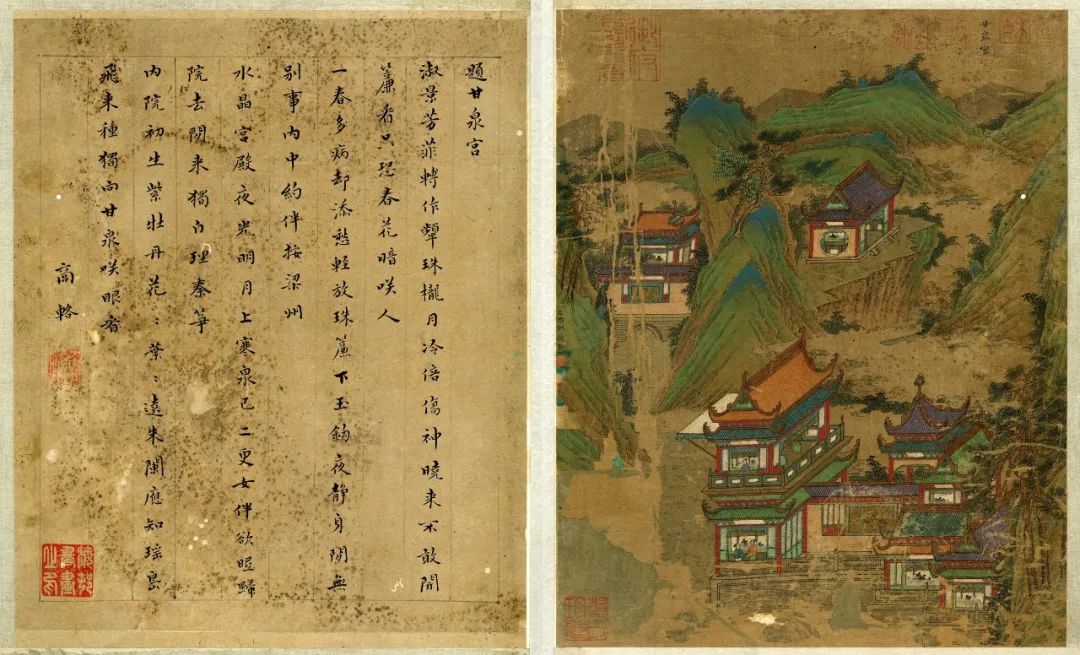 題甘泉宮
淑景芳菲轉作顰珠櫳月冷倍傷神曉来不敢開
簾看只恐春花暗咲人
一春多病却添愁輕放珠簾下玉鈎夜靜身閒無
別事內中約伴按梁州
水晶宮殿夜光明月上寒泉已二更女伴欲眠歸
院去閒来獨自理秦箏
內院初生紫牡丹花〻葉〻遶朱闌應知瑶島
飛来種獨向甘泉咲眼看
商輅
甘泉宮